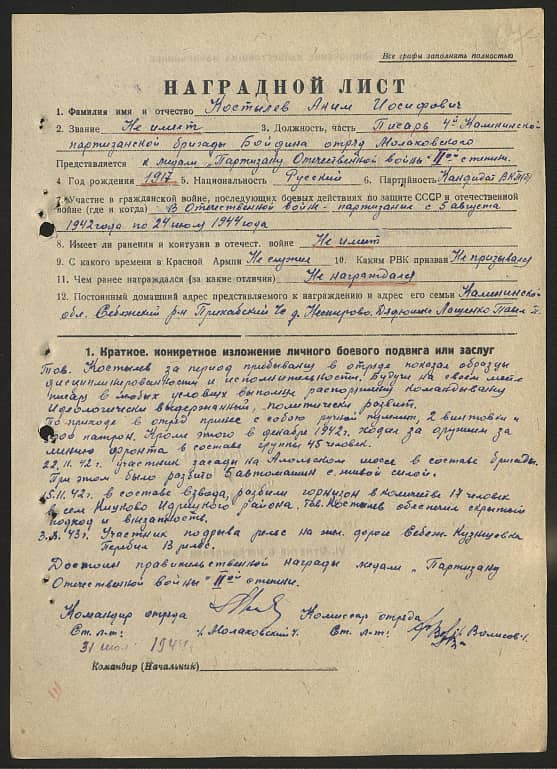 Все графы заполнять полностью
НАГРАДНОЙ ЛИСТ
1. Фамилия имя и отчество Костылев Аким Иосифович
2. Звание Не имеет 3. Должность, часть Писарь 4й Калининской
партизанской бригады Бойдина отряд Молаковского
Представляется к медали "Партизану Отечественной войны" IIой степени.
4 Год рождения 1917 5. Национальность Русский 6. Партийность Кандидат ВКП(б)
7. Участие в гражданской войне, последующих боевых действиях по защите СССР и отечественной
войне (где и когда) В Отечественной войне - партизанил с 5 августа
1942 года по 24 июлю 1944 года
8. Имеет ли ранения и контузии в отечест. войне Не имеет
9. С какого времени в Красной Армии Не служил 10. Каким РВК призван Не призывался
11. Чем ранее награждался (за какие отличия) Не награждался
12. Постоянный домашний адрес представляемого к награждению и адрес его семьи Калининская
обл. Себежский р-н Прихабский с д. Нестерово. Дядюшке Лащенко
1. Краткое, конкретное изложение личного боевого подвига или заслуг
Тов. Костылев за период прибывания в отряде показал образцы
дисциплинированности и исполнительности. Будучи на своем месте
писаря в любых условиях выполнял распоряжения командования
Идеологически выдержанный, политически развит.
По приходе в отряд принес с собою ручной пулемет, 2 винтовки и
патрон. Кроме этого в декабре 1942г. ходил за оружием за
линию фронта в составе группы 45 человек.
22.11.42г. участник засады на Алольском шоссе в составе бригады.
При этом было разбито 6 автомашин с живой силой.
15.11.42г. в составе взвода, разбили горнизон в количестве 17 человек
в селе района. Тов. Костылев обеспечил скрытный
подход и внезапность.
Участник подрыва рельс на жел. дороге Себеж - Кузнецовка
рельс.
Достоин правительственной награды медали "Партизану
Отечественной войны" IIой степени.
Командир отряда Комиссар отряда
Ст. л-т: /Молаковский/. Ст. л-т: /Волисов/.
31 июля 1944
Командир (Начальник)